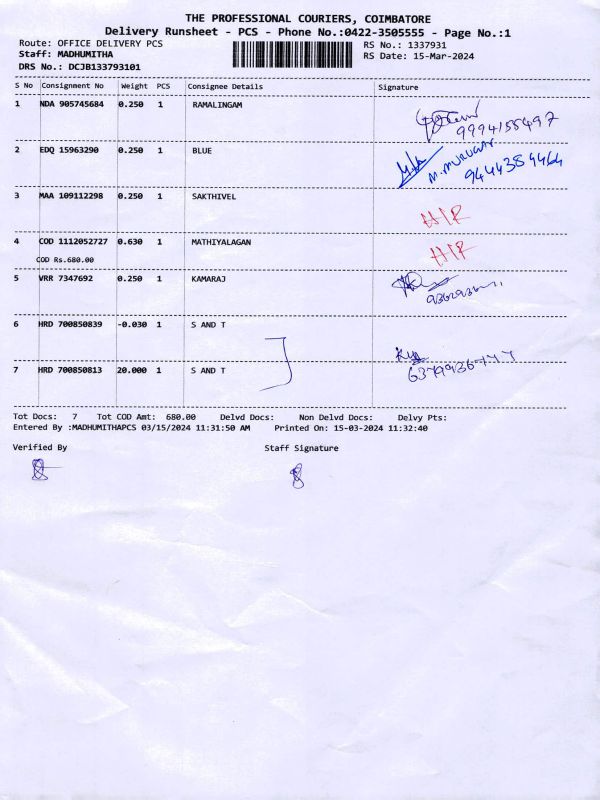 THE PROFESSIONAL COURIERS, COIMBATORE
Delivery Runsheet - PCS - Phone No.:0422-3505555 - Page No.:1
Route: OFFICE DELIVERY PCS RS No.: 1337931
Staff: MADHUMITHA RS Date: 15-Mar-2024
DRS No.: DCJB133793101
S No Consignment No Weight PCS Consignee Details Signature
1 NDA 905745684 0.250 1 RAMALINGAM
9994155497
2 EDQ 15963290 0.250 1 BLUE M.MURUGAN
9444384464
3 MAA 109112298 0.250 1 SAKTHIVEL
H/R
4 COD 1112052727 0.630 1 MATHIYALAGAN H/R
COD Rs.680.00
5 VRR 7347692 0.250 1 KAMARAJ
6 HRD 700850839 -0.030 1 S AND T
7 HRD 700850813 20.000 1 S AND T
Tot Docs: 7 Tot COD Amt: 680.00 Delvd Docs: Non Delvd Docs: Delvy Pts:
Entered By :MADHUMITHAPCS 03/15/2024 11:31:50 AM Printed On: 15-03-2024 11:32:40
Verified By Staff Signature